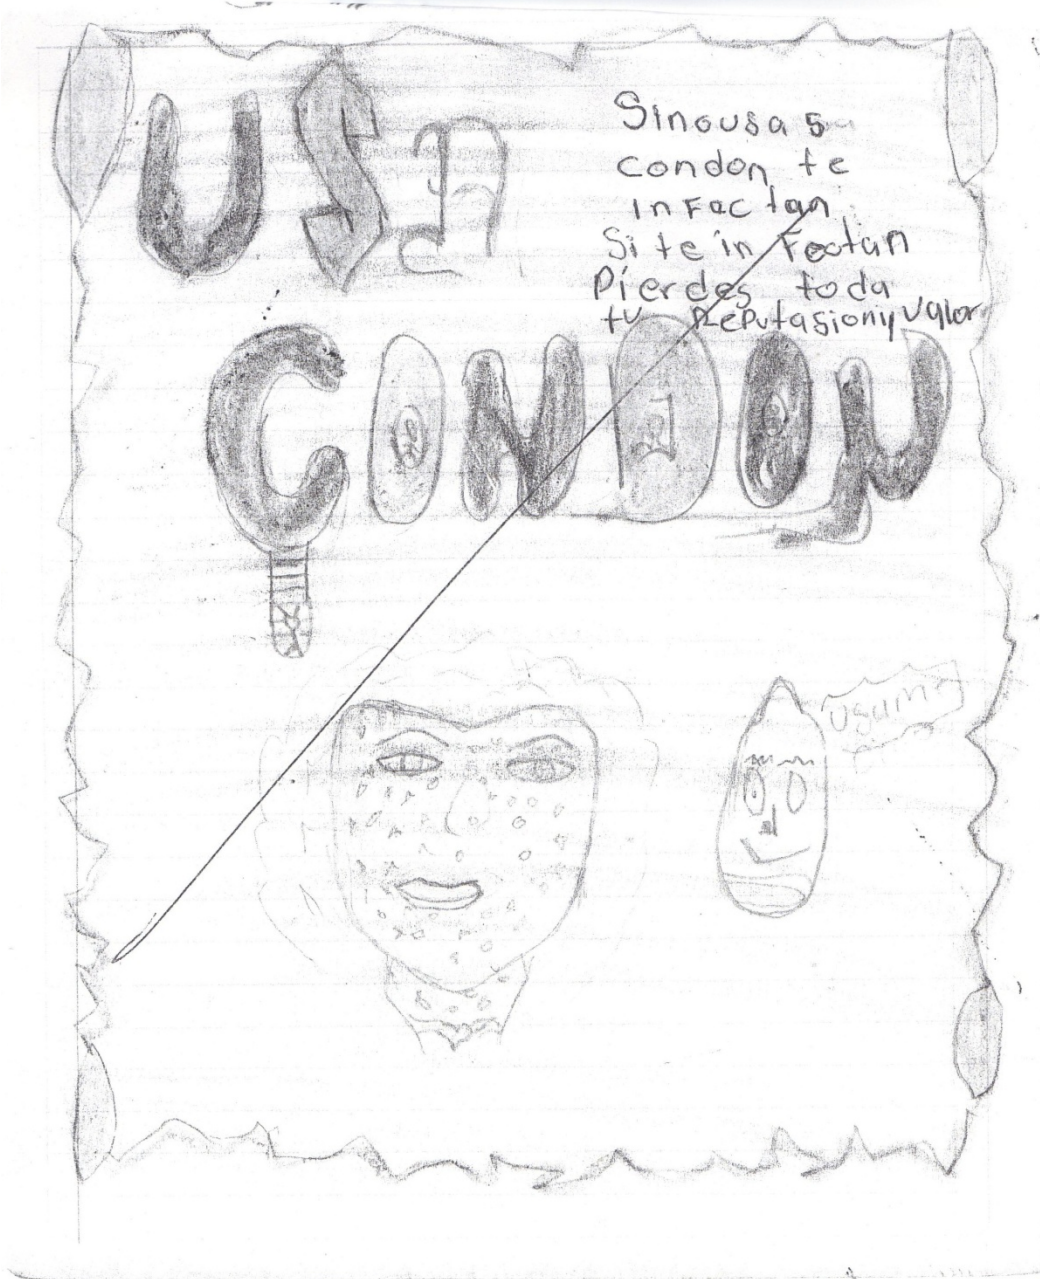 USA
Sinousa s
condon te
infectan
Si te infectan
Pierdes toda
tu Reputasion y valor
CONDON
Usame